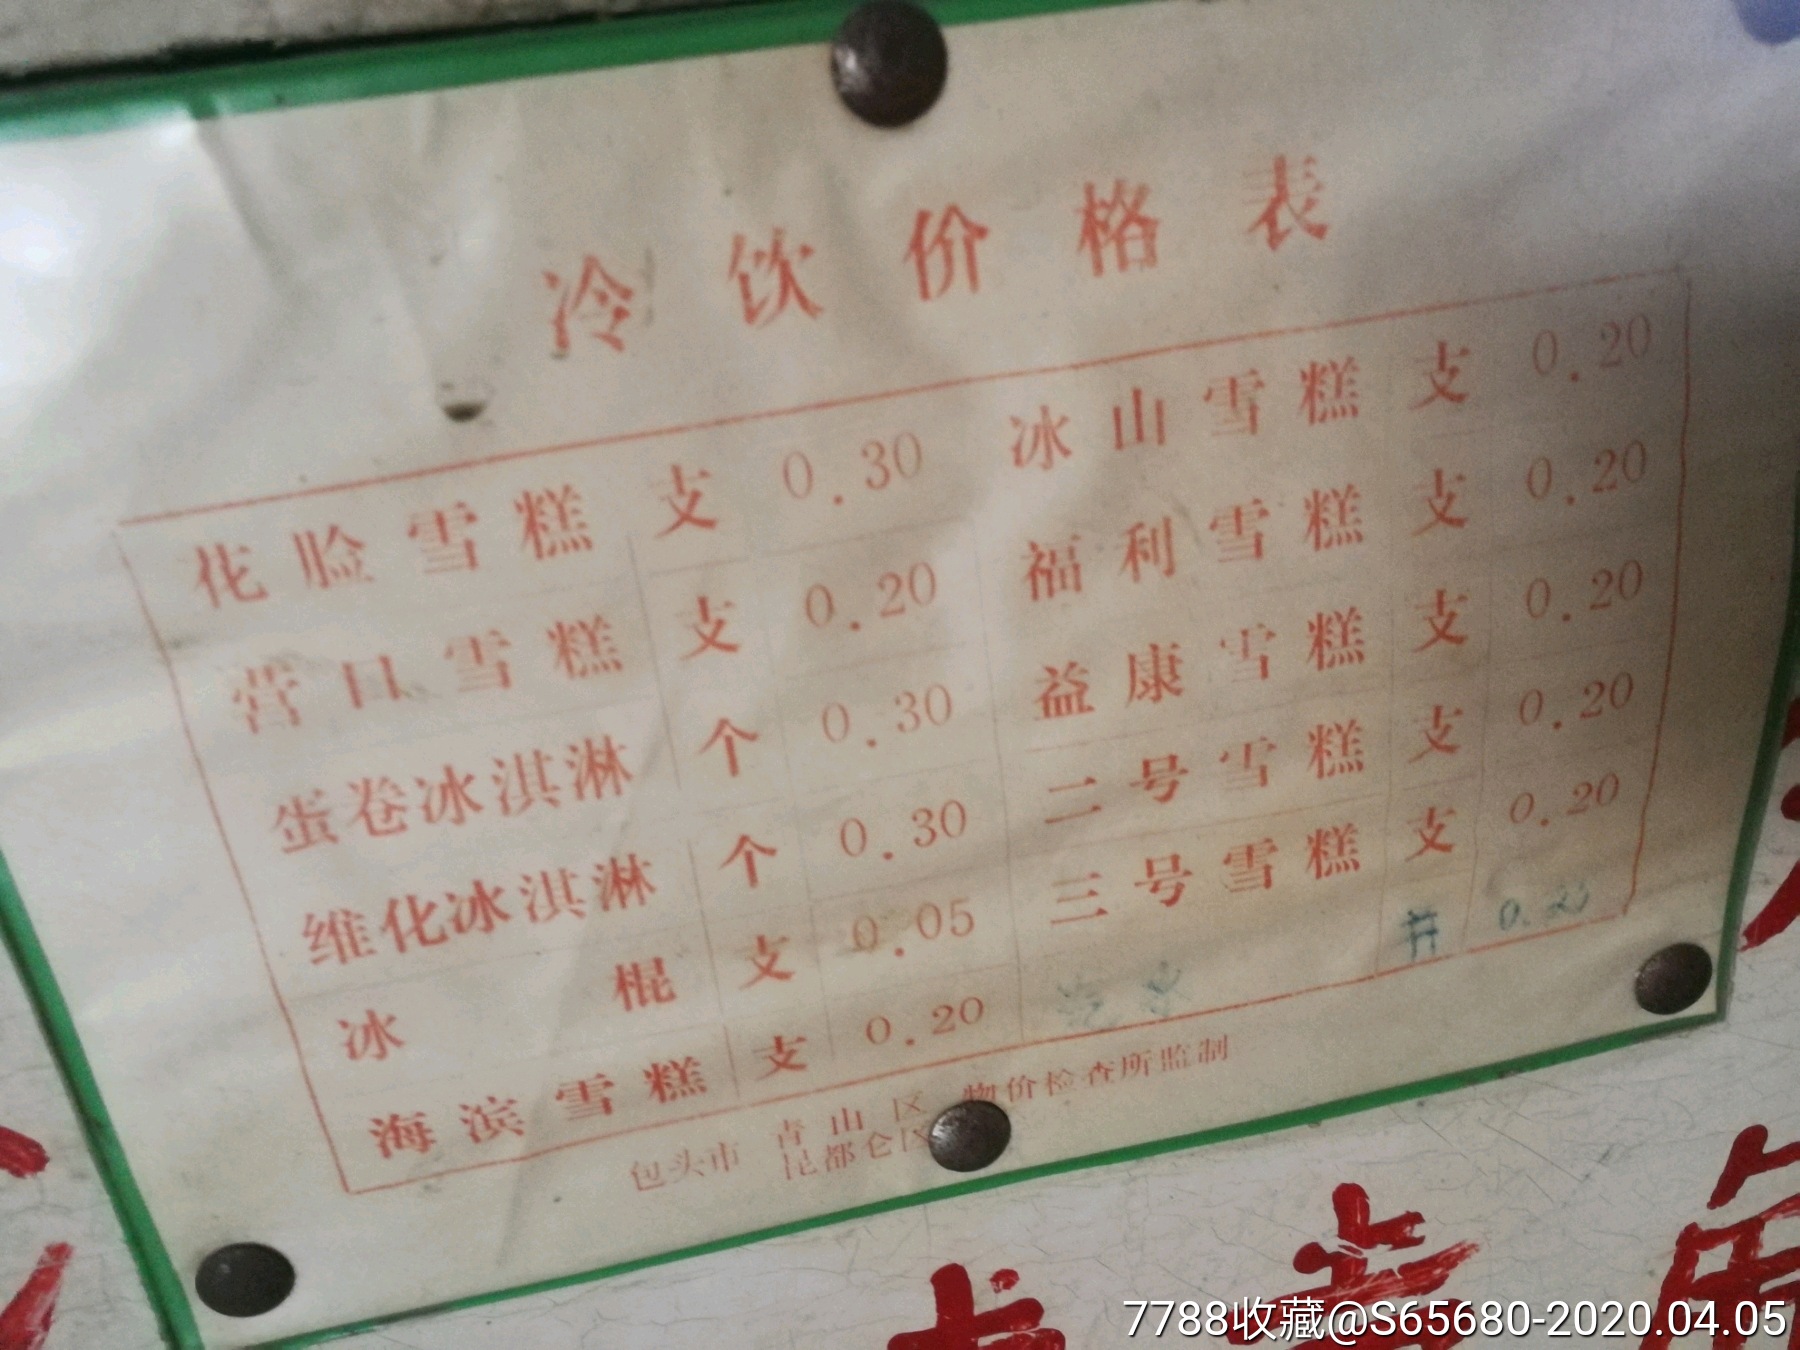 冷饮价格表
花脸雪糕 支 0.30 冰山雪糕 支 0.20
营口雪糕 支 0.20 福利雪糕 支 0.20
蛋卷冰淇淋 个 0.30 益康雪糕 支 0.20
维化冰淇淋 个 0.30 二号雪糕 支 0.20
冰棍 支 0.05 三号雪糕 支 0.20
海滨雪糕 支 0.20 汽水 0.2
包头市 青山区 物价检查所监制
昆都仑区
7788收藏@S65680-2020.04.05